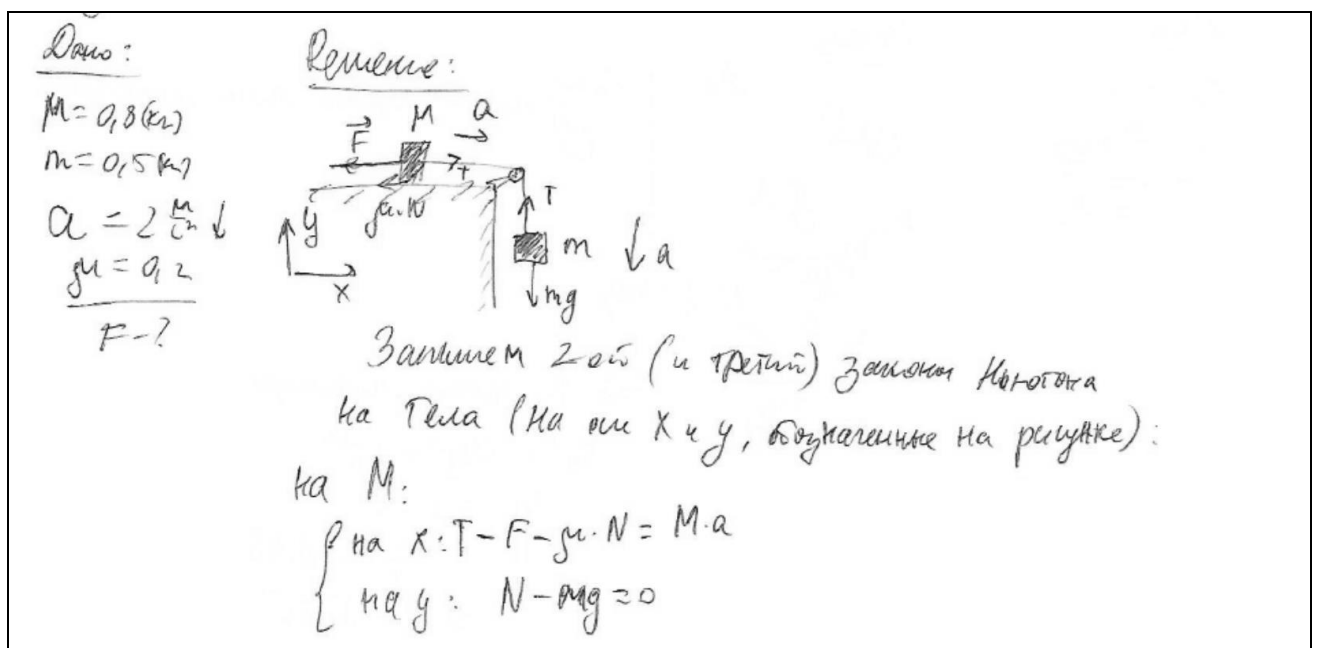 Дано:
M = 0,8 (кг)
m = 0,5 (кг)
a = 2 м/с² ↓
μ = 0,2
F - ?
Решение:
F M a
T
μ·N
T
y
x
m a
mg
Запишем 2ой (и третий) законы Ньютона
на тела (на оси x и y, обозначенные на рисунке):
на M:
на x: T - F - μ·N = M·a
на y: N - Mg = 0